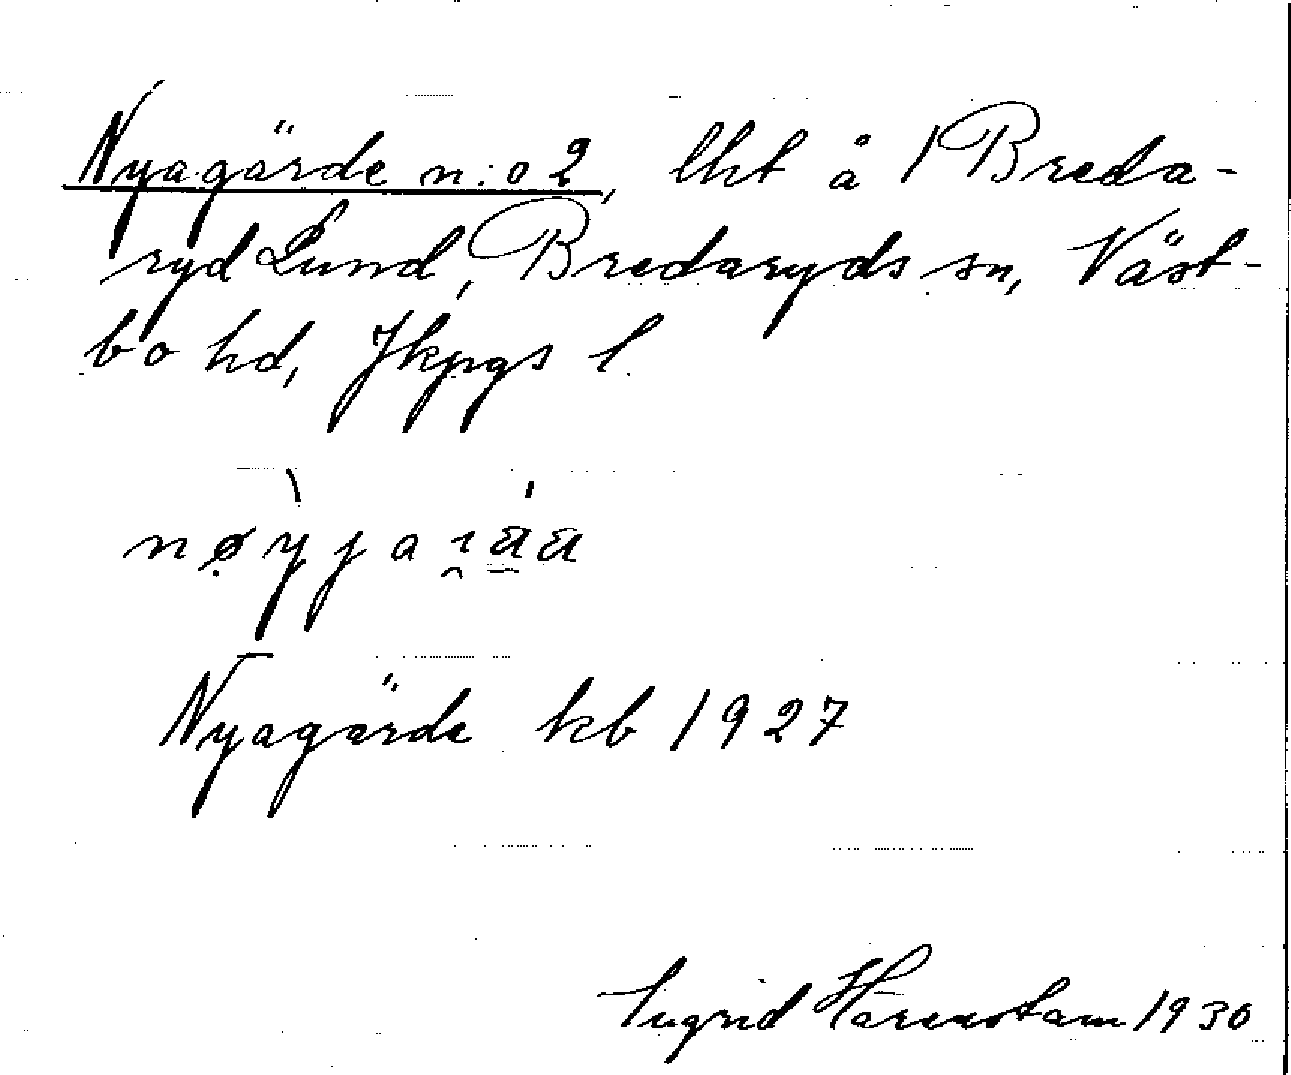 Nyagärde n:o 2, lht å 1 Breda-
ryd Lund, Bredaryds sn, Väst-
bo hd, Jkpgs l.
Nyagärde kb 1927
Ingrid Härenstam 1930